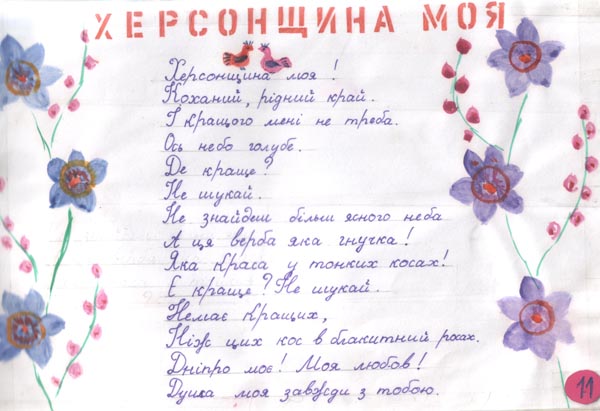 ХЕРСОНЩИНА МОЯ
Херсонщина моя !
Коханий, рідний край.
І кращого мені не треба.
Ось небо голубе.
Де краще?
Не шукай.
Не знайдеш більш ясного неба
А ця верба яка гнучка!
Яка краса у тонких косах!
Є краще? Не шукай.
Немає кращих,
Ніж цих кос в блакитний росах.
Дніпро моє! Моя любов!
Душа моя завжди з тобою.
11